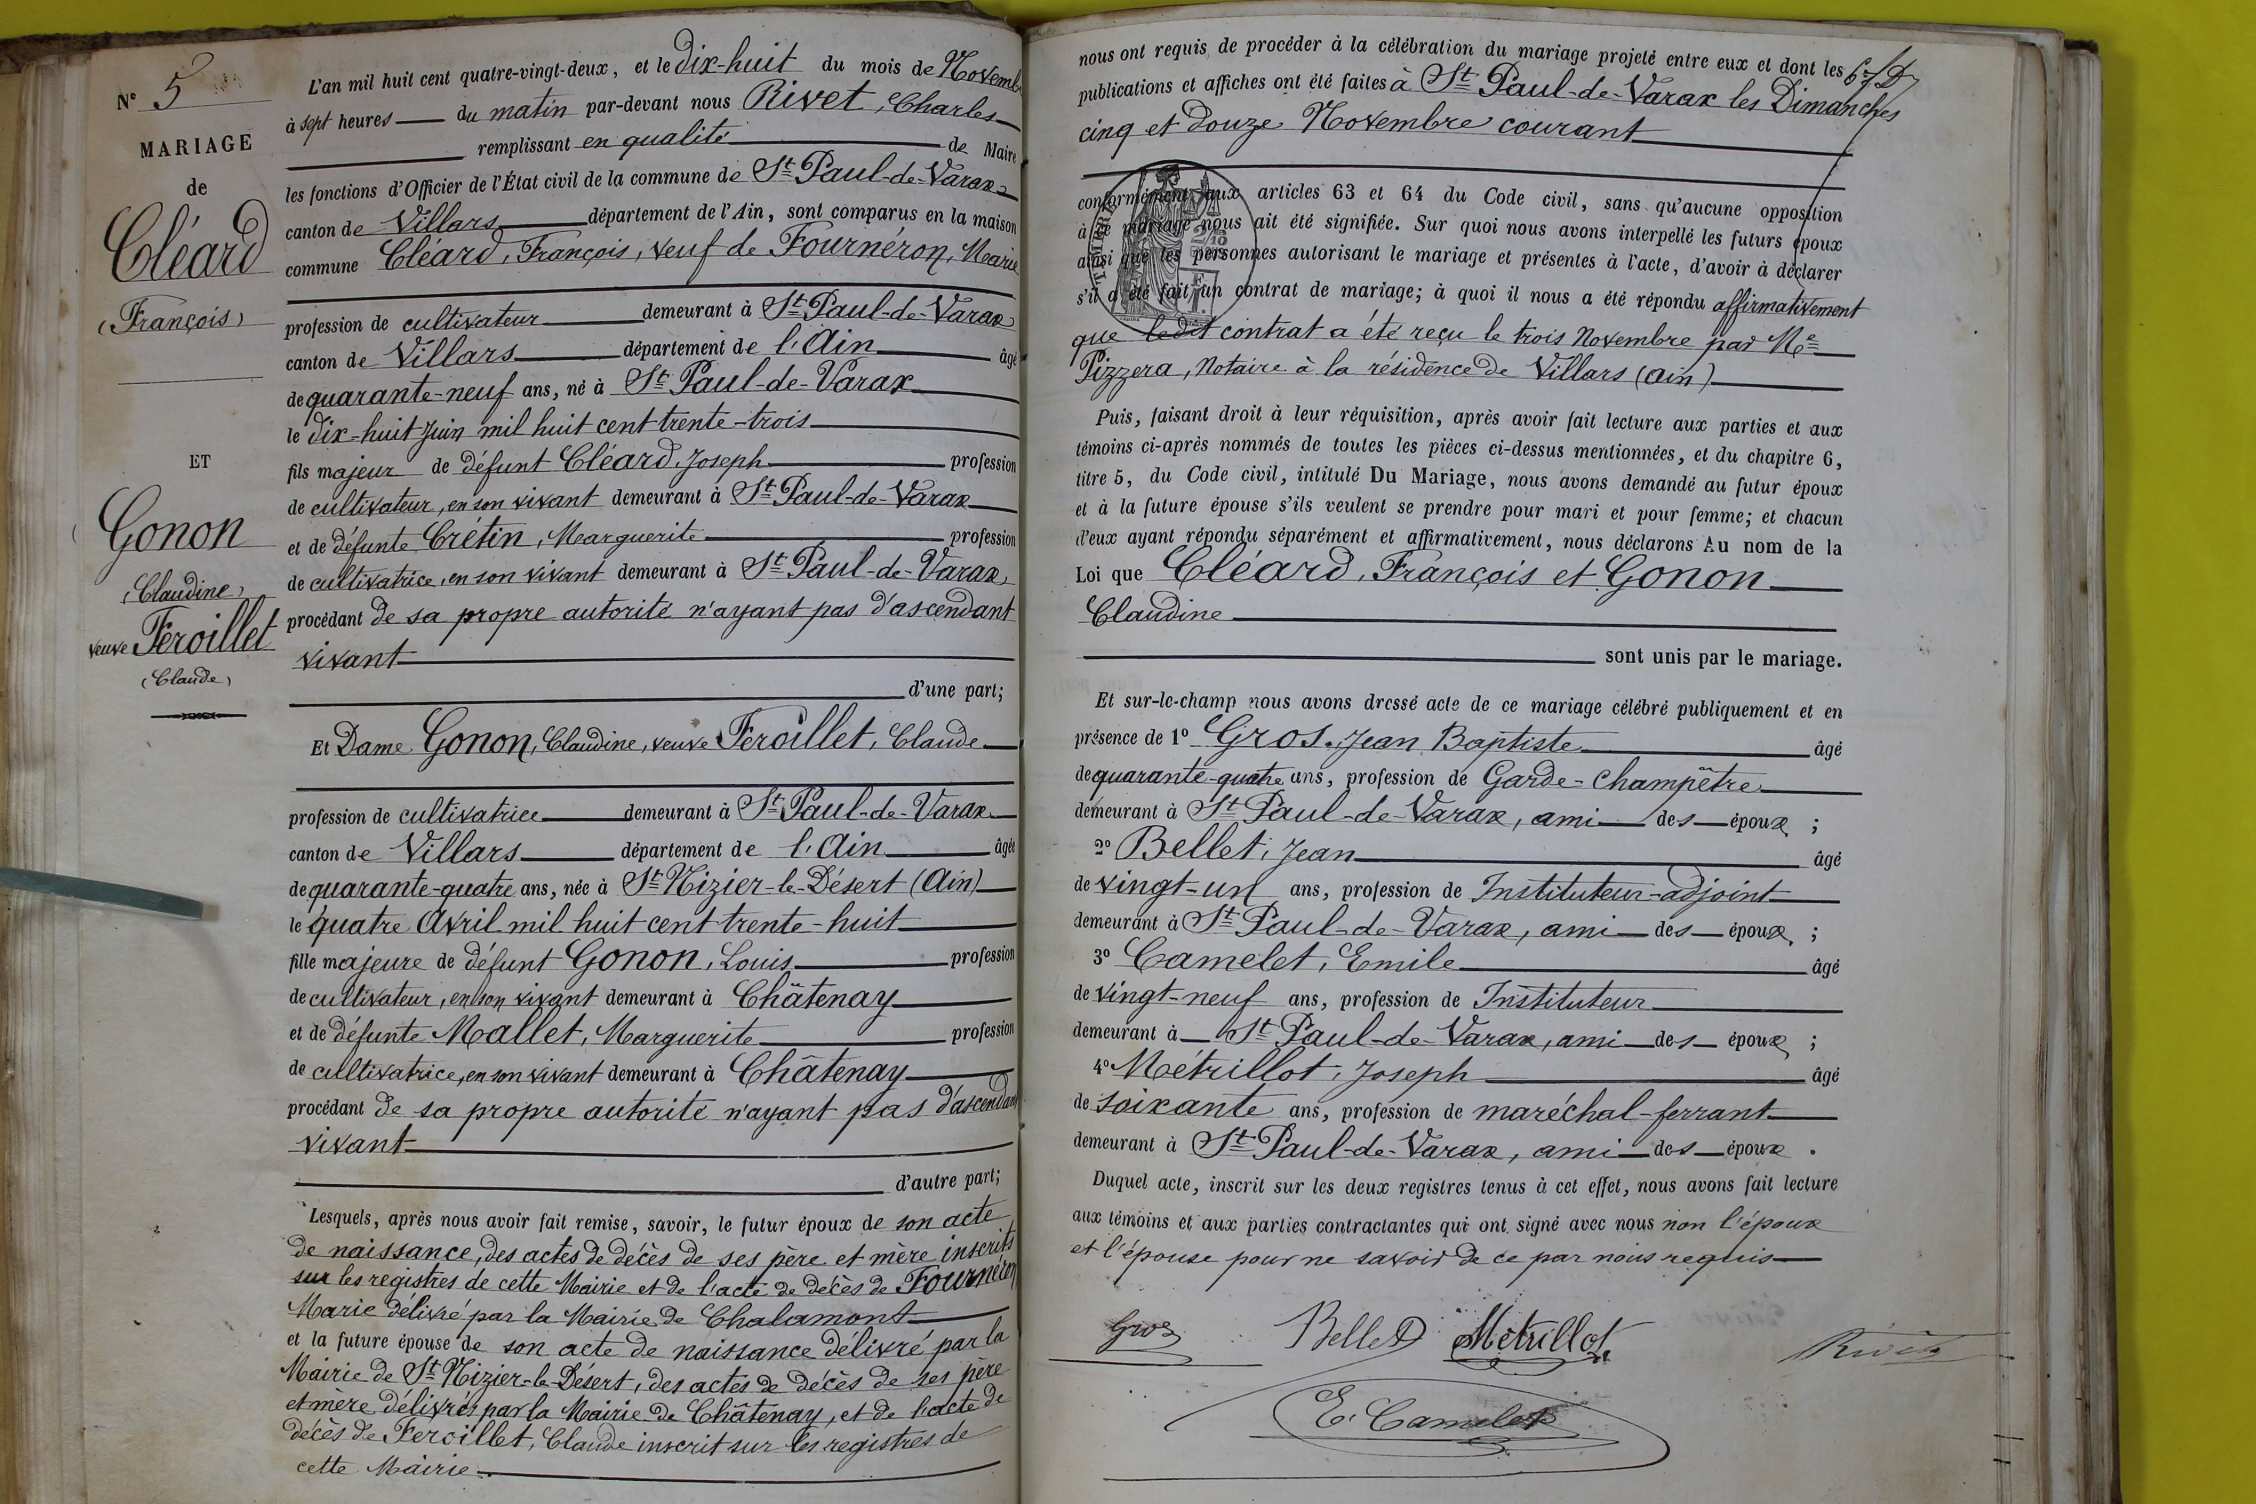 N° 5
MARIAGE
de
Cléard
(François)
ET
Gonon
(Claudine)
veuve Feroillet
(Claude)
L'an mil huit cent quatre-vingt-deux, et le dix-huit du mois de Novemb
à sept heures du matin par-devant nous Rivet, Charles
remplissant en qualité de Maire
les fonctions d'Officier de l'État civil de la commune de St Paul-de-Varax
canton de Villars département de l'Ain, sont comparus en la maison
commune Cléard, François, veuf de Fournéron, Marie
profession de cultivateur demeurant à St Paul-de-Varax
canton de Villars département de l'Ain âgé
de quarante-neuf ans, né à St Paul-de-Varax
le dix-huit Juin mil huit cent trente-trois
fils majeur de défunt Cléard, Joseph profession
de cultivateur, en son vivant demeurant à St Paul-de-Varax
et de défunte Crétin, Marguerite profession
de cultivatrice, en son vivant demeurant à St Paul-de-Varax,
procédant de sa propre autorité n'ayant pas d'ascendant
vivant
d'une part;
Et Dame Gonon, Claudine, veuve Feroillet, Claude
profession de cultivatrice demeurant à St Paul-de-Varax
canton de Villars département de l'Ain âgée
de quarante-quatre ans, née à St Nizier-le-Désert (Ain)
le quatre Avril mil huit cent trente-huit
fille majeure de défunt Gonon, Louis profession
de cultivateur, en son vivant demeurant à Châtenay
et de défunte Mallet, Marguerite profession
de cultivatrice, en son vivant demeurant à Châtenay
procédant de sa propre autorité n'ayant pas d'ascendant
vivant
d'autre part;
Lesquels, après nous avoir fait remise, savoir, le futur époux de son acte
de naissance, des actes de décès de ses père et mère inscrits
sur les registres de cette Mairie et de l'acte de décès de Fournéron
Marie délivré par la Mairie de Chalamont
et la future épouse de son acte de naissance délivré par la
Mairie de St Nizier-le-Désert, des actes de décès de ses père
et mère délivrés par la Mairie de Châtenay, et de l'acte de
décès de Feroillet, Claude inscrit sur les registres de
cette Mairie
nous ont requis de procéder à la célébration du mariage projeté entre eux et dont les
publications et affiches ont été faites à St Paul-de-Varax les Dimanches
cinq et douze Novembre courant
conformément aux articles 63 et 64 du Code civil, sans qu'aucune opposition
à ce mariage nous ait été signifiée. Sur quoi nous avons interpellé les futurs époux
ainsi que les personnes autorisant le mariage et présentes à l'acte, d'avoir à déclarer
s'il a été fait un contrat de mariage; à quoi il nous a été répondu affirmativement
que ledit contrat a été reçu le trois Novembre par Me
Pizzera, Notaire à la résidence de Villars (Ain)
Puis, faisant droit à leur réquisition, après avoir fait lecture aux parties et aux
témoins ci-après nommés de toutes les pièces ci-dessus mentionnées, et du chapitre 6,
titre 5, du Code civil, intitulé Du Mariage, nous avons demandé au futur époux
et à la future épouse s'ils veulent se prendre pour mari et pour femme; et chacun
d'eux ayant répondu séparément et affirmativement, nous déclarons Au nom de la
Loi que Cléard, François et Gonon
Claudine
sont unis par le mariage.
Et sur-le-champ nous avons dressé acte de ce mariage célébré publiquement et en
présence de 1° Gros, Jean Baptiste âgé
de quarante-quatre ans, profession de Garde-Champêtre
demeurant à St Paul-de-Varax, ami des époux ;
2° Bellet, Jean âgé
de vingt-un ans, profession de Instituteur-adjoint
demeurant à St Paul-de-Varax, ami des époux ;
3° Camelet, Emile âgé
de vingt-neuf ans, profession de Instituteur
demeurant à St Paul-de-Varax, ami des époux ;
4° Métrillot, Joseph âgé
de soixante ans, profession de maréchal-ferrant
demeurant à St Paul-de-Varax, ami des époux .
Duquel acte, inscrit sur les deux registres tenus à cet effet, nous avons fait lecture
aux témoins et aux parties contractantes qui ont signé avec nous non l'époux
et l'épouse pour ne savoir de ce par nous requis
Gros Bellet Métrillot Rivet
E. Camelet